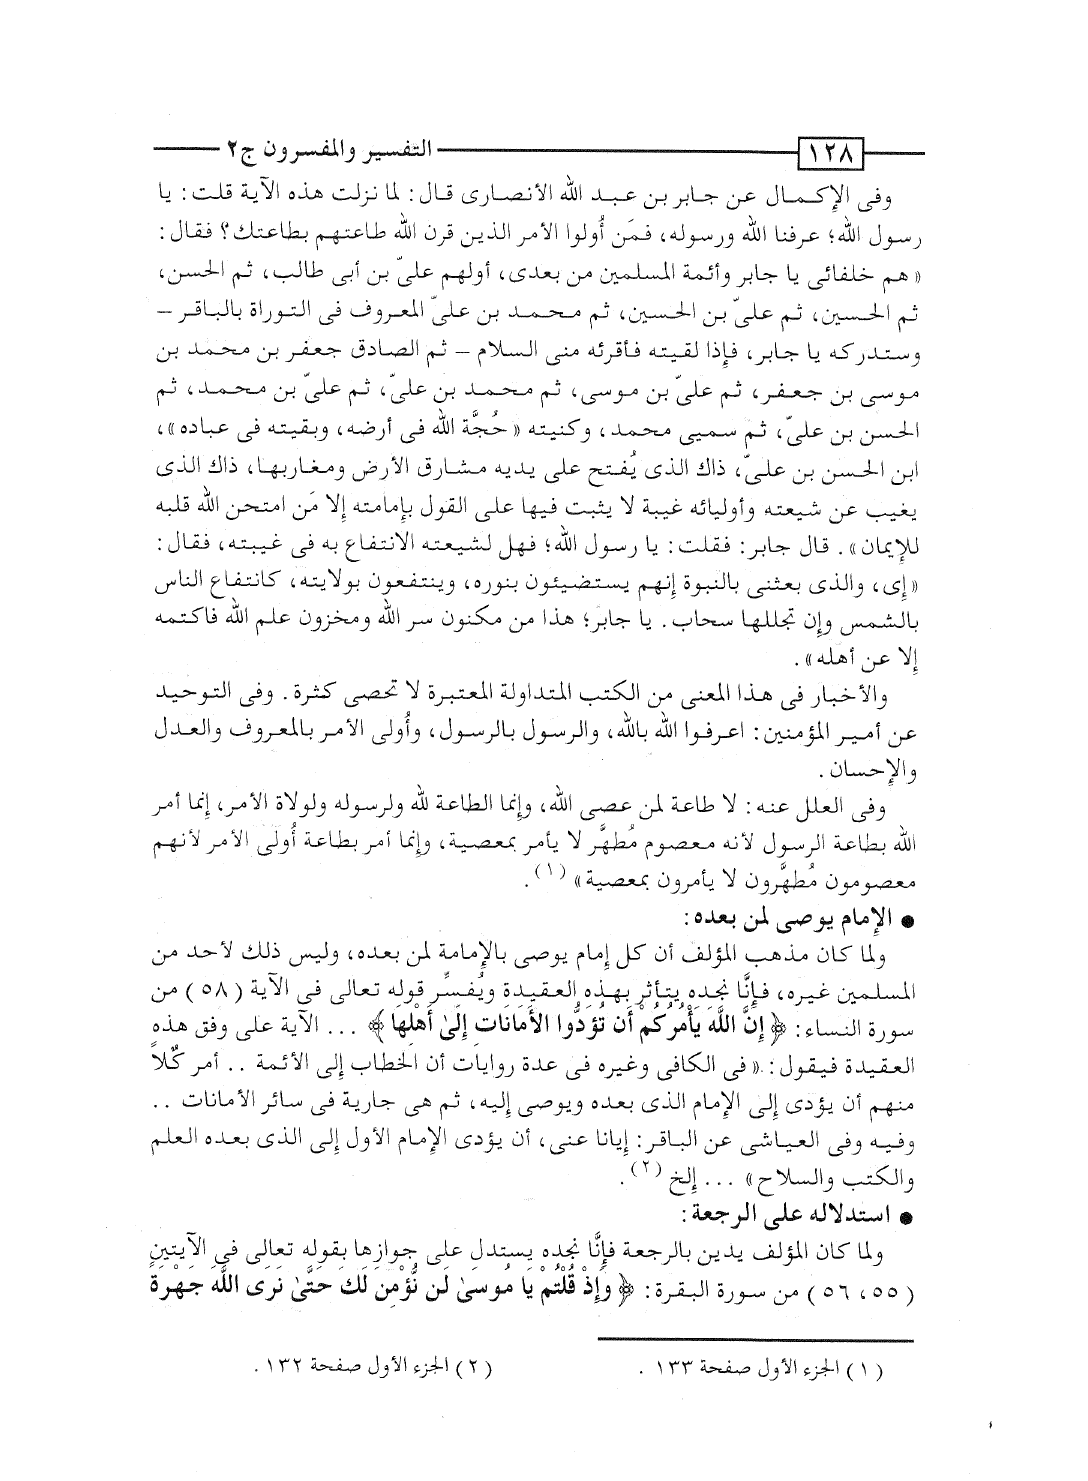 ١٢٨ التفسير والمفسرون ج٢
وفى الإكمال عن جابر بن عبد الله الأنصارى قال: لما نزلت هذه الآية قلت: يا
رسول الله؛ عرفنا الله ورسوله، فمَن أُولوا الأمر الذين قرن الله طاعتهم بطاعتك؟ فقال:
«هم خلفائى يا جابر وأئمة المسلمين من بعدى، أولهم علىّ بن أبى طالب، ثم الحسن،
ثم الحسين، ثم علىّ بن الحسين، ثم محمد بن علىّ المعروف فى التوراة بالباقر –
وستدركه يا جابر، فإذا لقيته فأقرئه منى السلام – ثم الصادق جعفر بن محمد بن
موسى بن جعفر، ثم علىّ بن موسى، ثم محمد بن علىّ، ثم علىّ بن محمد، ثم
الحسن بن علىّ، ثم سميى محمد، وكنيته «حُجَّة الله فى أرضه، وبقيته فى عباده»،
ابن الحسن بن علىّ، ذاك الذى يُفتح على يديه مشارق الأرض ومغاربها، ذاك الذى
يغيب عن شيعته وأوليائه غيبة لا يثبت فيها على القول بإمامته إلا مَن امتحن الله قلبه
للإيمان». قال جابر: فقلت: يا رسول الله؛ فهل لشيعته الانتفاع به فى غيبته، فقال:
«إى، والذى بعثنى بالنبوة إنهم يستضيئون بنوره، وينتفعون بولايته، كانتفاع الناس
بالشمس وإن تجللها سحاب. يا جابر؛ هذا من مكنون سر الله ومخزون علم الله فاكتمه
إلا عن أهله».
والأخبار فى هذا المعنى من الكتب المتداولة المعتبرة لا تحصى كثرة. وفى التوحيد
عن أمير المؤمنين: اعرفوا الله بالله، والرسول بالرسول، وأُولى الأمر بالمعروف والعدل
والإحسان.
وفى العلل عنه: لا طاعة لمن عصى الله، وإنما الطاعة لله ولرسوله ولولاة الأمر، إنما أمر
الله بطاعة الرسول لأنه معصوم مُطهَّر لا يأمر بمعصية، وإنما أمر بطاعة أُولى الأمر لأنهم
معصومون مُطهَّرون لا يأمرون بمعصية» (١).
● الإمام يوصى لمن بعده:
ولما كان مذهب المؤلف أن كل إمام يوصى بالإمامة لمن بعده، وليس ذلك لأحد من
المسلمين غيره، فإنَّا نجده يتأثر بهذه العقيدة ويُفسِّر قوله تعالى فى الآية (٥٨) من
سورة النساء: ﴿إِنَّ اللَّهَ يَأْمُرُكُمْ أَن تُؤَدُّوا الأَمَانَاتِ إِلَىٰ أَهْلِهَا﴾ ... الآية على وفق هذه
العقيدة فيقول: «فى الكافى وغيره فى عدة روايات أن الخطاب إلى الأئمة .. أمر كُلاً
منهم أن يؤدى إلى الإمام الذى بعده ويوصى إليه، ثم هى جارية فى سائر الأمانات ..
وفيه وفى العياشى عن الباقر: إيانا عنى، أن يؤدى الإمام الأول إلى الذى بعده العلم
والكتب والسلاح» ... إلخ (٢).
● استدلاله على الرجعة:
ولما كان المؤلف يدين بالرجعة فإنَّا نجده يستدل على جوازها بقوله تعالى فى الآيتين
(٥٥، ٥٦) من سورة البقرة: ﴿وَإِذْ قُلْتُمْ يَا مُوسَىٰ لَن نُّؤْمِنَ لَكَ حَتَّىٰ نَرَى اللَّهَ جَهْرَةً
(١) الجزء الأول صفحة ١٣٣.
(٢) الجزء الأول صفحة ١٣٢.